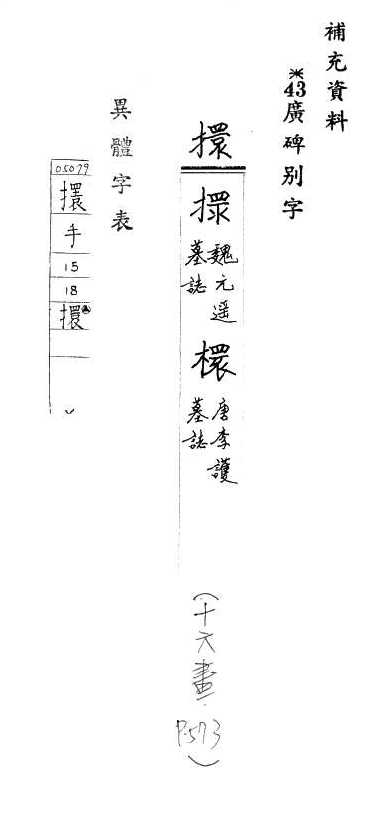 補充資料
※43廣碑別字
擐
擐
魏元遥
墓誌
檈
唐李護
墓誌
(十六畫.
P.573)
異體字表
05079
擐
手
15
18
擐